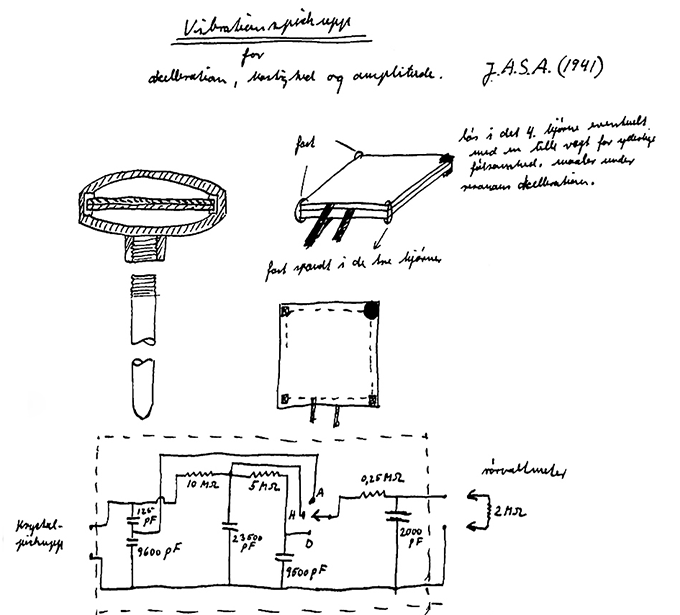 Vibrationspickupp
for
akelleration, hastighed og amplitude.
J.A.S.A. (1941)
fast
løs i det 4. hjørne eventuelt
med en lille vægt for yderlige
følsomhed, maaler under
resonans akelleration.
fast spændt i de tre hjørner
Krystal-
pickupp
125
pF
9600 pF
10 MΩ
23500
pF
5 MΩ
A
H
D
9500 pF
0,25 MΩ
2000
pF
rørvoltmeter
2 MΩ